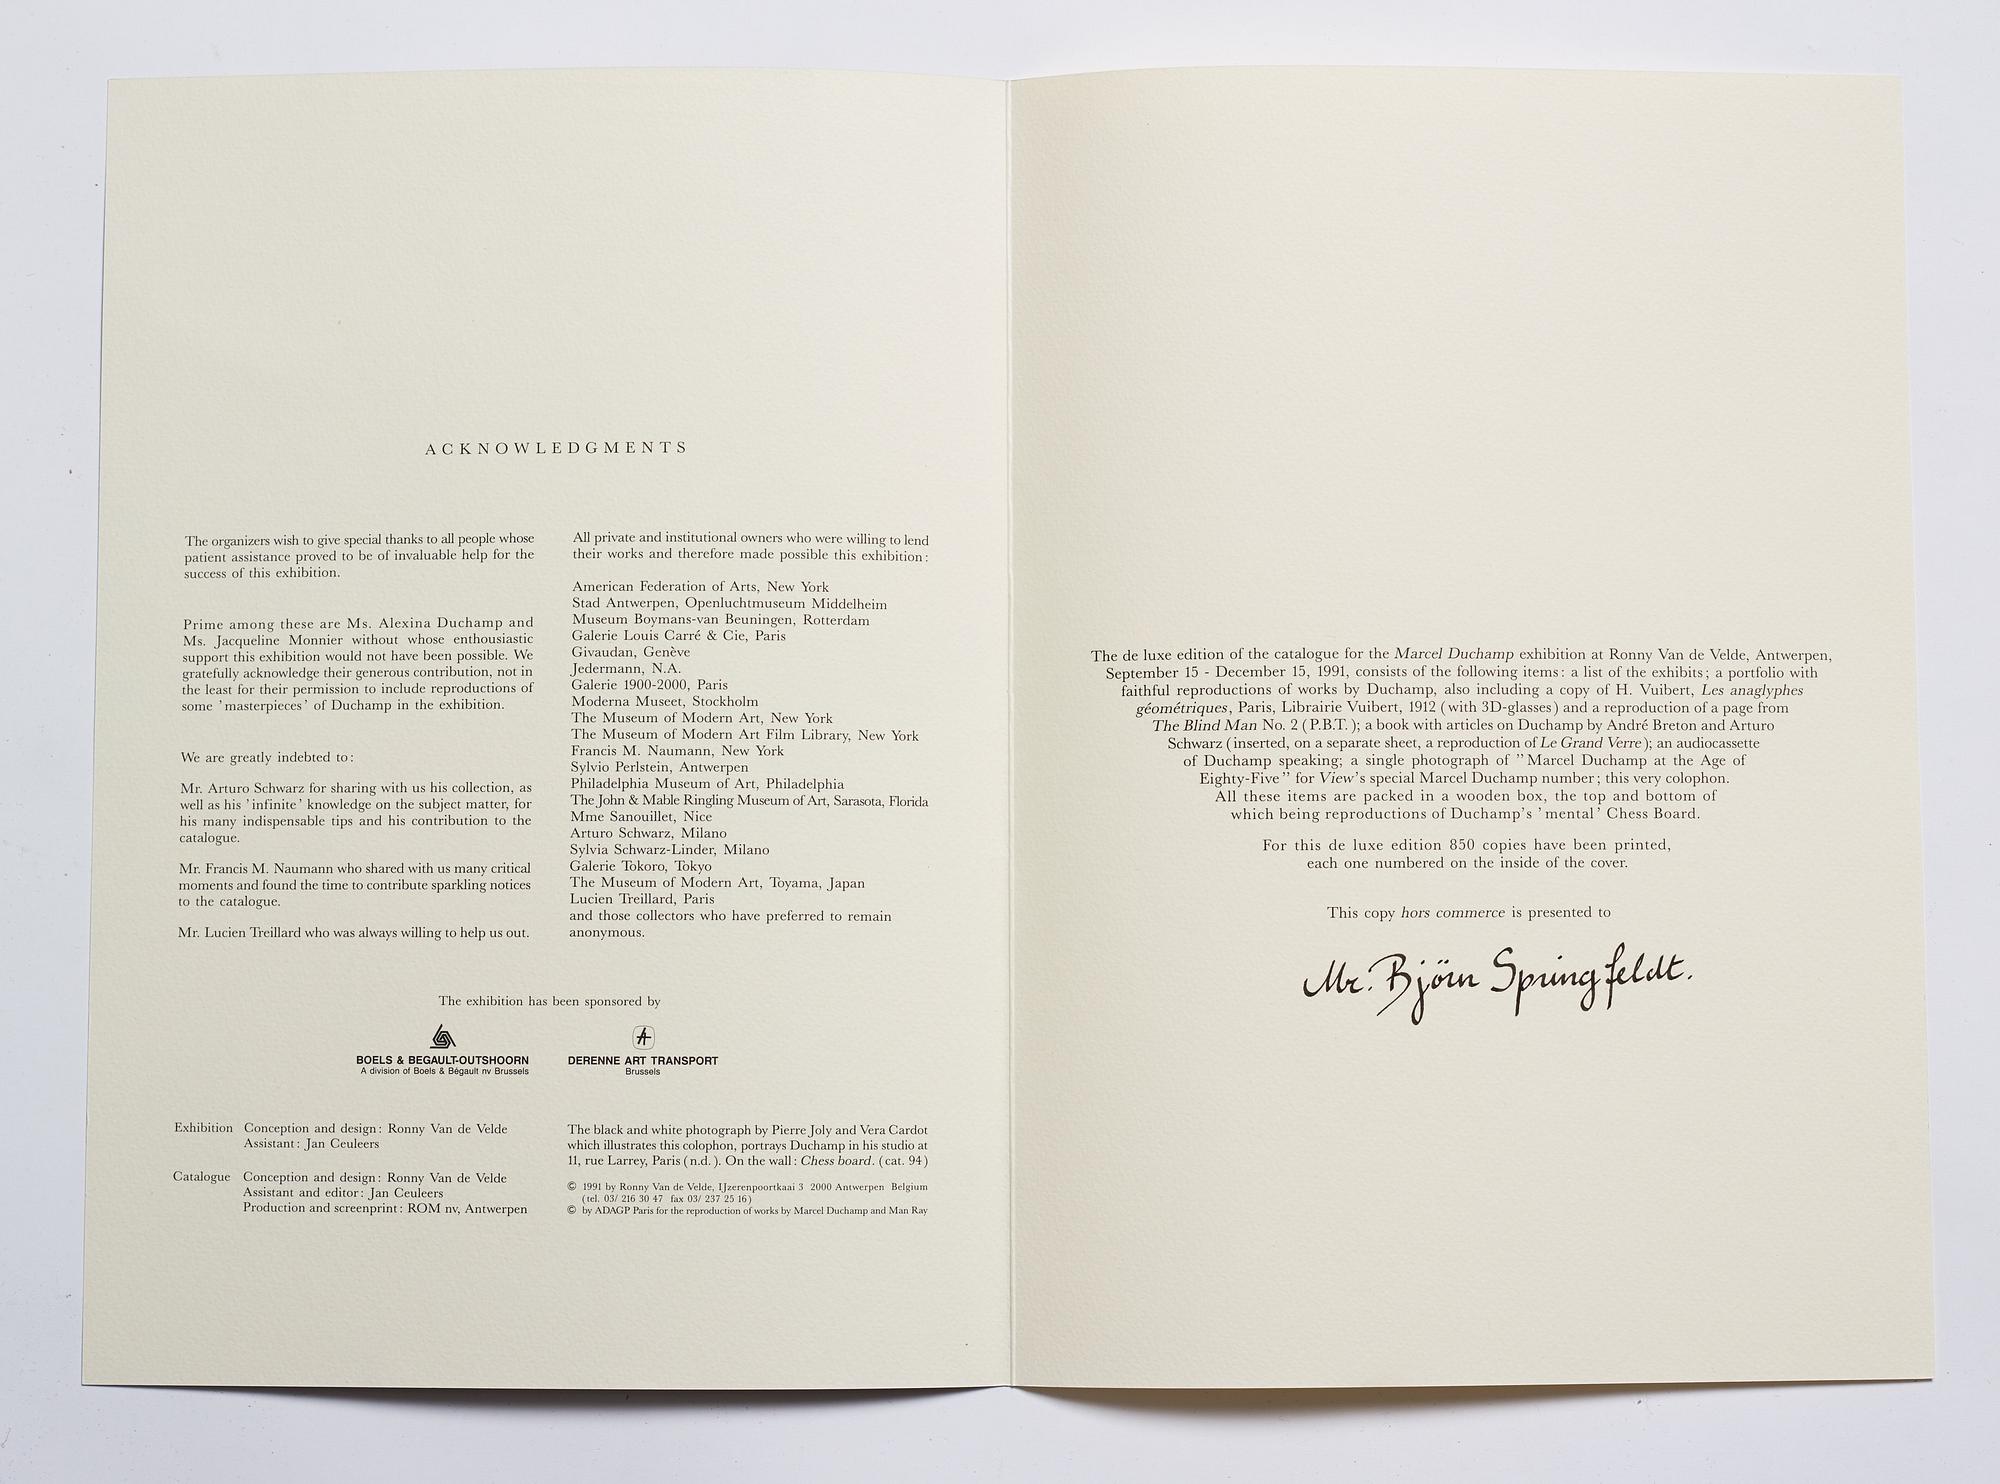 ACKNOWLEDGMENTS
The organizers wish to give special thanks to all people whose
patient assistance proved to be of invaluable help for the
success of this exhibition.
Prime among these are Ms. Alexina Duchamp and
Ms. Jacqueline Monnier without whose enthousiastic
support this exhibition would not have been possible. We
gratefully acknowledge their generous contribution, not in
the least for their permission to include reproductions of
some 'masterpieces' of Duchamp in the exhibition.
We are greatly indebted to:
Mr. Arturo Schwarz for sharing with us his collection, as
well as his 'infinite' knowledge on the subject matter, for
his many indispensable tips and his contribution to the
catalogue.
Mr. Francis M. Naumann who shared with us many critical
moments and found the time to contribute sparkling notices
to the catalogue.
Mr. Lucien Treillard who was always willing to help us out.
All private and institutional owners who were willing to lend
their works and therefore made possible this exhibition:
American Federation of Arts, New York
Stad Antwerpen, Openluchtmuseum Middelheim
Museum Boymans-van Beuningen, Rotterdam
Galerie Louis Carré & Cie, Paris
Givaudan, Genève
Jedermann, N.A.
Galerie 1900-2000, Paris
Moderna Museet, Stockholm
The Museum of Modern Art, New York
The Museum of Modern Art Film Library, New York
Francis M. Naumann, New York
Sylvio Perlstein, Antwerpen
Philadelphia Museum of Art, Philadelphia
The John & Mable Ringling Museum of Art, Sarasota, Florida
Mme Sanouillet, Nice
Arturo Schwarz, Milano
Sylvia Schwarz-Linder, Milano
Galerie Tokoro, Tokyo
The Museum of Modern Art, Toyama, Japan
Lucien Treillard, Paris
and those collectors who have preferred to remain
anonymous.
The exhibition has been sponsored by
BOELS & BEGAULT-OUTSHOORN
A division of Boels & Bégault nv Brussels
DERENNE ART TRANSPORT
Brussels
Exhibition Conception and design: Ronny Van de Velde
Assistant: Jan Ceuleers
Catalogue Conception and design: Ronny Van de Velde
Assistant and editor: Jan Ceuleers
Production and screenprint: ROM nv, Antwerpen
The black and white photograph by Pierre Joly and Vera Cardot
which illustrates this colophon, portrays Duchamp in his studio at
11, rue Larrey, Paris (n.d.). On the wall: Chess board. (cat. 94)
© 1991 by Ronny Van de Velde, IJzerenpoortkaai 3 2000 Antwerpen Belgium
(tel. 03/ 216 30 47 fax 03/ 237 25 16)
© by ADAGP Paris for the reproduction of works by Marcel Duchamp and Man Ray
The de luxe edition of the catalogue for the Marcel Duchamp exhibition at Ronny Van de Velde, Antwerpen,
September 15 - December 15, 1991, consists of the following items: a list of the exhibits; a portfolio with
faithful reproductions of works by Duchamp, also including a copy of H. Vuibert, Les anaglyphes
géométriques, Paris, Librairie Vuibert, 1912 (with 3D-glasses) and a reproduction of a page from
The Blind Man No. 2 (P.B.T.); a book with articles on Duchamp by André Breton and Arturo
Schwarz (inserted, on a separate sheet, a reproduction of Le Grand Verre); an audiocassette
of Duchamp speaking; a single photograph of "Marcel Duchamp at the Age of
Eighty-Five" for View's special Marcel Duchamp number; this very colophon.
All these items are packed in a wooden box, the top and bottom of
which being reproductions of Duchamp's 'mental' Chess Board.
For this de luxe edition 850 copies have been printed,
each one numbered on the inside of the cover.
This copy hors commerce is presented to
Mr. Björn Springfeldt.